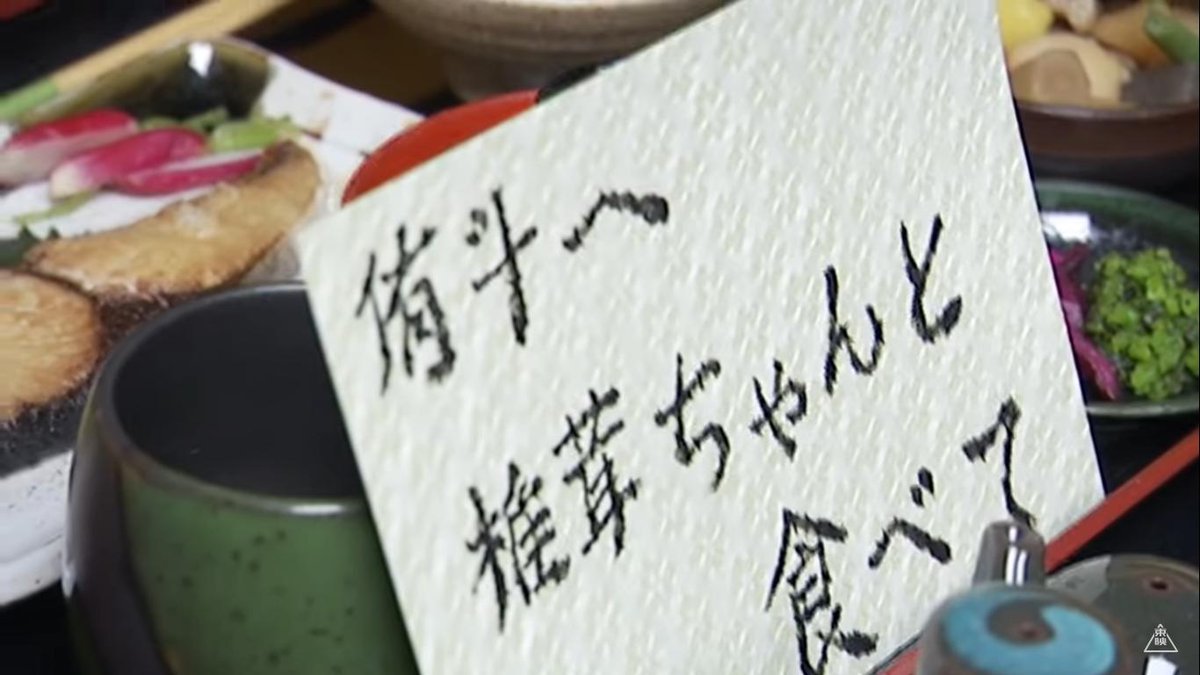 侑斗へ
椎茸ちゃんと
食べて
東映